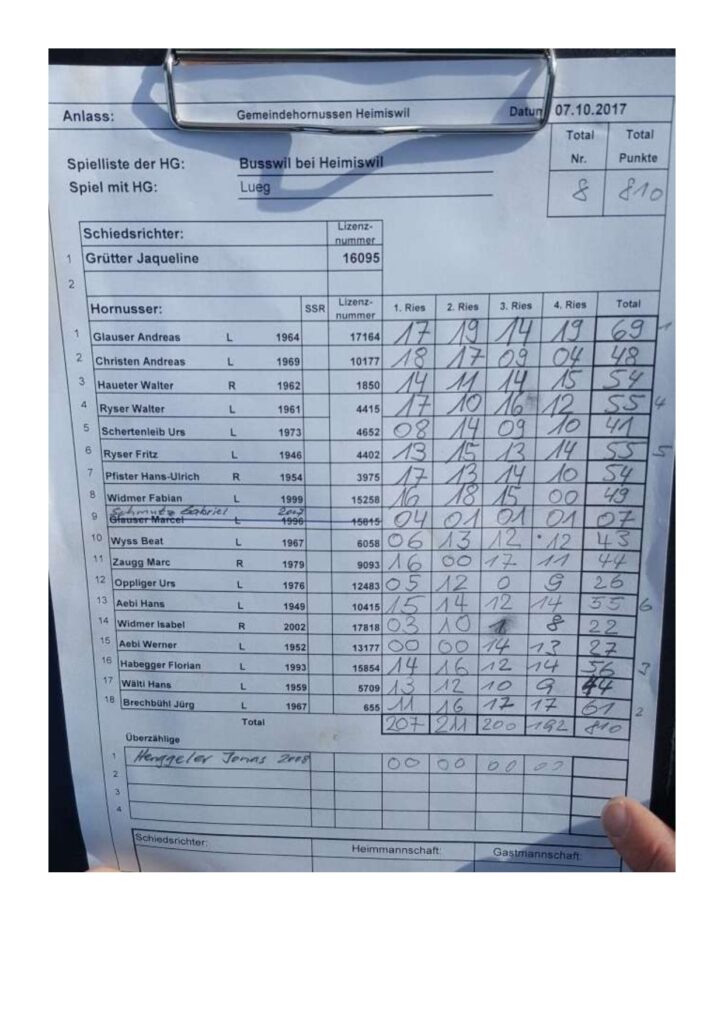 Anlass: Gemeindehornussen Heimiswil Datum 07.10.2017
Total Nr. Total Punkte
Spielliste der HG: Busswil bei Heimiswil
Spiel mit HG: Lueg
8 810
Schiedsrichter: Lizenz-nummer
1 Grütter Jaqueline 16095
2
Hornusser: SSR Lizenz-nummer 1. Ries 2. Ries 3. Ries 4. Ries Total
1 Glauser Andreas L 1964 17164 17 19 14 19 69 1
2 Christen Andreas L 1969 10177 18 17 09 04 48
3 Haueter Walter R 1962 1850 14 11 14 15 54
4 Ryser Walter L 1961 4415 17 10 16 12 55 4
5 Schertenleib Urs L 1973 4652 08 14 09 10 41
6 Ryser Fritz L 1946 4402 13 15 13 14 55 5
7 Pfister Hans-Ulrich R 1954 3975 17 13 14 10 54
8 Widmer Fabian L 1999 15258 16 18 15 00 49
Schmutz Gabriel
9 Glauser Marcel L 1996 15815 04 01 01 01 07
10 Wyss Beat L 1967 6058 06 13 12 12 43
11 Zaugg Marc R 1979 9093 16 00 17 11 44
12 Oppliger Urs L 1976 12483 05 12 0 9 26
13 Aebi Hans L 1949 10415 15 14 12 14 55 6
14 Widmer Isabel R 2002 17818 03 10 1 8 22
15 Aebi Werner L 1952 13177 00 00 14 13 27
16 Habegger Florian L 1993 15854 14 16 12 14 56 3
17 Wälti Hans L 1959 5709 13 12 10 9 44
18 Brechbühl Jürg L 1967 655 11 16 17 17 61 2
Total 207 211 200 192 810
Überzählige
1 Henggeler Jonas 2008 00 00 00 00
2
3
4
Schiedsrichter: Heimmannschaft: Gastmannschaft: